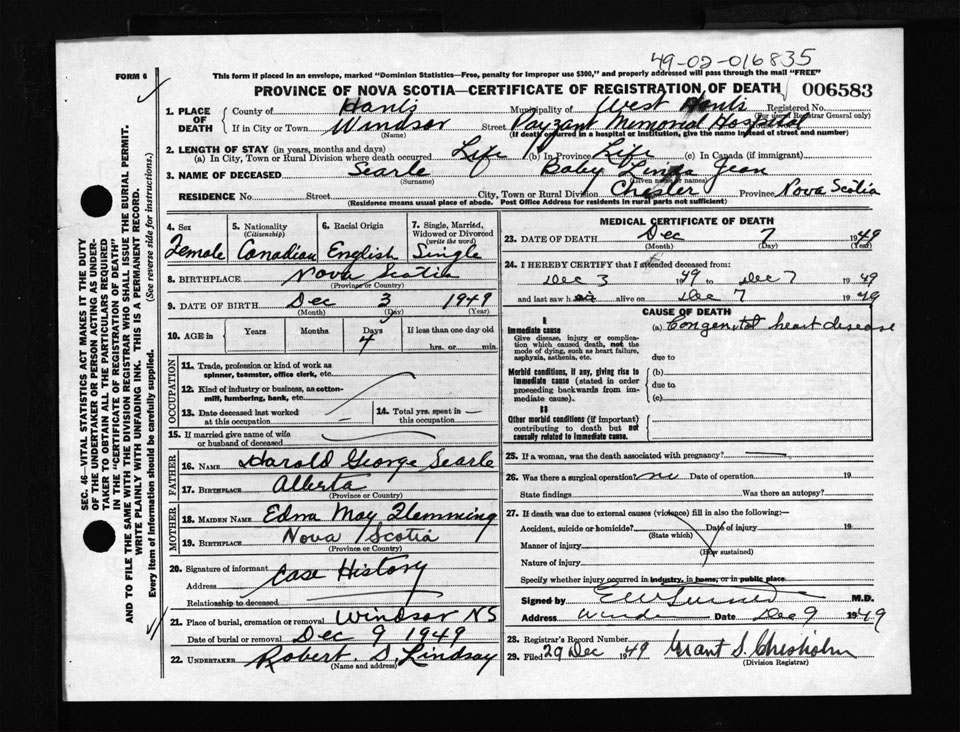 49-02-016835
FORM 6
This form if placed in an envelope, marked "Dominion Statistics—Free, penalty for improper use $300," and properly addressed will pass through the mail "FREE"
PROVINCE OF NOVA SCOTIA—CERTIFICATE OF REGISTRATION OF DEATH 006583
1. PLACE OF DEATH
County of Hants Municipality of West Hants Registered No.
(For use of Registrar General only)
If in City or Town Windsor Street Payzant Memorial Hospital
(Name) (If death occurred in a hospital or institution, give the name instead of street and number)
2. LENGTH OF STAY (in years, months and days)
(a) In City, Town or Rural Division where death occurred Life (b) In Province Life (c) In Canada (if immigrant)
3. NAME OF DECEASED Searle Baby Linda Jean
(Surname) (Given name or names)
RESIDENCE No. Street City, Town or Rural Division Chester Province Nova Scotia
(Residence means usual place of abode. Post Office Address for residents in rural parts not sufficient)
SEC. 46—VITAL STATISTICS ACT MAKES IT THE DUTY
OF THE UNDERTAKER OR PERSON ACTING AS UNDER-
TAKER TO OBTAIN ALL THE PARTICULARS REQUIRED
IN THE "CERTIFICATE OF REGISTRATION OF DEATH"
AND TO FILE THE SAME WITH THE DIVISION REGISTRAR WHO SHALL ISSUE THE BURIAL PERMIT.
WRITE PLAINLY WITH UNFADING INK. THIS IS A PERMANENT RECORD.
Every item of Information should be carefully supplied. (See reverse side for instructions.)
4. Sex
Female
5. Nationality
(Citizenship)
Canadian
6. Racial Origin
English
7. Single, Married,
Widowed or Divorced
(write the word)
Single
8. BIRTHPLACE Nova Scotia
(Province or Country)
9. DATE OF BIRTH Dec 3 1949
(Month) (Day) (Year)
10. AGE in Years Months Days If less than one day old
4 hrs. or min.
OCCUPATION
11. Trade, profession or kind of work as
spinner, teamster, office clerk, etc.
12. Kind of industry or business, as cotton-
mill, lumbering, bank, etc.
13. Date deceased last worked
at this occupation
14. Total yrs. spent in
this occupation
15. If married give name of wife
or husband of deceased
FATHER
16. NAME Harold George Searle
17. BIRTHPLACE Alberta
(Province or Country)
MOTHER
18. MAIDEN NAME Edna May Flemming
19. BIRTHPLACE Nova Scotia
(Province or Country)
20. Signature of informant Case History
Address
Relationship to deceased
21. Place of burial, cremation or removal Windsor NS
Date of burial or removal Dec 9 1949
22. UNDERTAKER Robert. D. Lindsay
(Name and address)
MEDICAL CERTIFICATE OF DEATH
23. DATE OF DEATH Dec 7 1949
(Month) (Day) (Year)
24. I HEREBY CERTIFY that I attended deceased from:
Dec 3 1949 to Dec 7 1949
and last saw h alive on Dec 7 1949
CAUSE OF DEATH
I
Immediate cause
Give disease, injury or complica-
tion which caused death, not the
mode of dying, such as heart failure,
asphyxia, asthenia, etc.
(a) Congenital heart disease
due to
Morbid conditions, if any, giving rise to
immediate cause (stated in order
proceeding backwards from im-
mediate cause).
(b)
due to
(c)
II
Other morbid conditions (if important)
contributing to death but not
causally related to immediate cause.
25. If a woman, was the death associated with pregnancy?
26. Was there a surgical operation? no Date of operation 19
State findings Was there an autopsy?
27. If death was due to external causes (violence) fill in also the following:—
Accident, suicide or homicide? Date of injury 19
(State which)
Manner of injury
(How sustained)
Nature of injury
Specify whether injury occurred in industry, in home, or in public place
Signed by M.D.
Address Date Dec 9 1949
28. Registrar's Record Number
29. Filed 29 Dec 1949 Grant S. Chisholm
(Division Registrar)